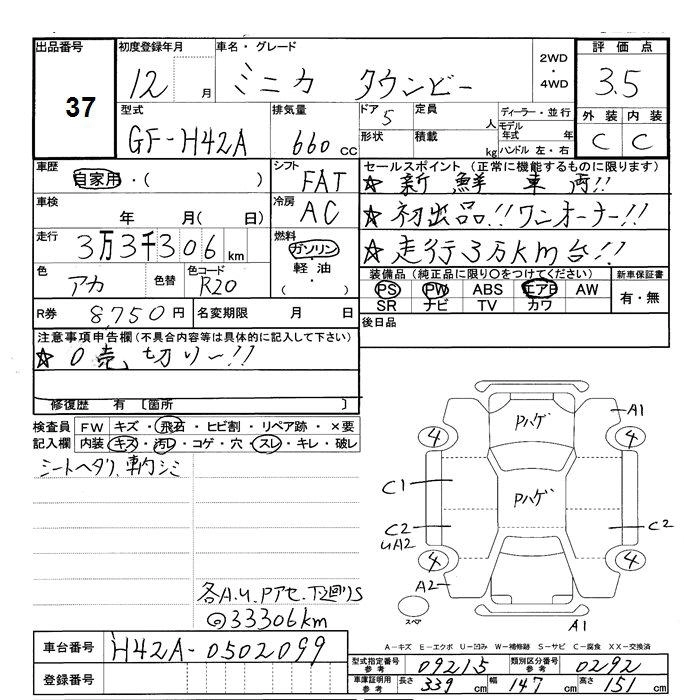 出品番号 37
初度登録年月 12 月
車名・グレード ミニカ タウンビー
2WD・4WD
評価点 3.5
外装 内装
C C
型式 GF-H42A
排気量 660 cc
ドア 5
定員 人
形状
積載 kg
ディーラー・並行
モデル年式 年
ハンドル 左・右
車歴 自家用・( )
シフト FAT
セールスポイント (正常に機能するものに限ります)
☆新鮮車両!!
車検 年 月( 日)
冷房 AC
☆初出品!!ワンオーナー!!
走行 3万3千306 km
燃料 ガソリン・軽油・( )
☆走行3万km台!!
色 アカ 色替
色コード R20
装備品 (純正品に限り○をつけてください)
PS PW ABS エアB AW
SR ナビ TV カワ
新車保証書 有・無
R券 8,750円
名変期限 月 日
後日品
注意事項申告欄(不具合内容等は具体的に記入して下さい)
☆0売切り〜!!
修復歴 有 〔箇所 〕
検査員記入欄
FW キズ・飛石・ヒビ割・リペア跡・×要
内装 キズ・汚レ・コゲ・穴・スレ・キレ・破レ
シートヘタリ、車内シミ
各A.U.Pアセ.下廻りS
◎33306km
Pハゲ
A1
4 4
Pハゲ
C1
C2
UA2
C2
4 4
A2
スペア
A1
A-キズ E-エクボ U-凹み W-補修跡 S-サビ C-腐食 XX-交換済
車台番号 H42A-0502099
登録番号
型式指定番号 参考 09215
類別区分番号 参考 0292
車庫証明用 参考 長さ 339 cm 幅 147 cm 高さ 151 cm